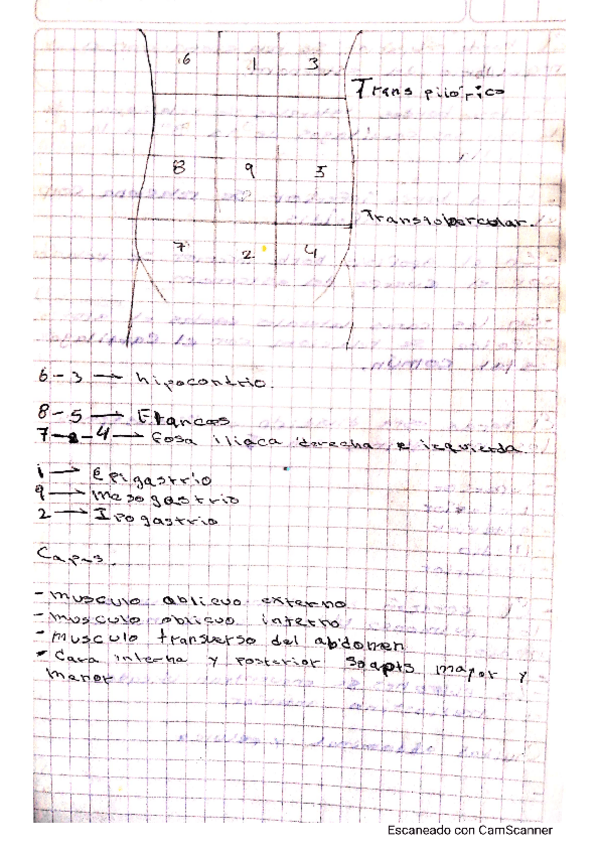 6 1 3
Transpilórico
8 9 5
Transtubercular.
7 2 4
6-3 → hipocondrio.
8-5 → Flancos
7-4 → Fosa iliaca derecha e izquierda.
1 → Epigastrio
9 → mesogastrio
2 → Ipogastrio
Capas.
- musculo oblicuo externo
- musculo oblicuo interno
- musculo transverso del abdomen
- Cara interna y posterior Soapts mayor y
menor
Escaneado con CamScanner